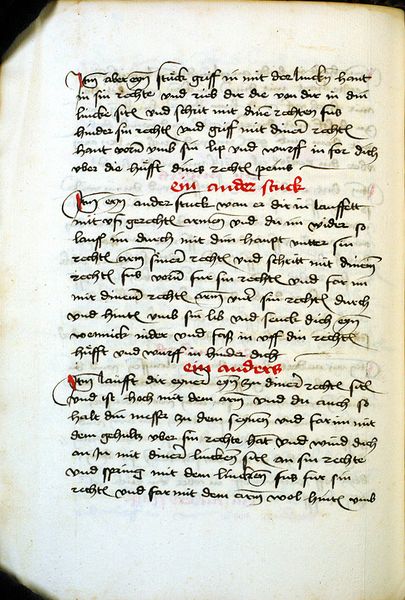 Jtm aber eyn stuck griff in mit der lincken hant
in sin rechte und rib dir die von dir in din
lincke sitl und schrit mit dinē rechten fus
hinder sin rechtl und griff mit dinerē rechtl
hant vorn umb sin lip und wurff in for dich
uber die hüfft dines rechtl peins
ein ander stuck
Jtm eyn ander stuck wan er dir in laufft
mit uff gerechtl armen und du im wider so
lauff im durch mit dim haupt unter sin
rechtl arm sinerē rechtl und schritt mit dinem
rechtl fus vorn fur sin rechtl und far im
mit dinem rechtl arm sin rechtl durch
und hintl umb sin lib und senck dich eyn
wennick nider und faß in uff din rechtl
hüfft und wurff in hinder dich
ein anders
Jtm laufft dir eyner eyn zu diner rechtl sitl
und ist hoch mit dem arm und du auch so
halt din messer zu dem seynen und far im mit
dem gehultz uber sin rechte hat und wind dich
an in mit diner lincken sitl an sin rechte
und spring mit dem lincken fus fur sin
rechtl und far mit dem arm wol hintl umb